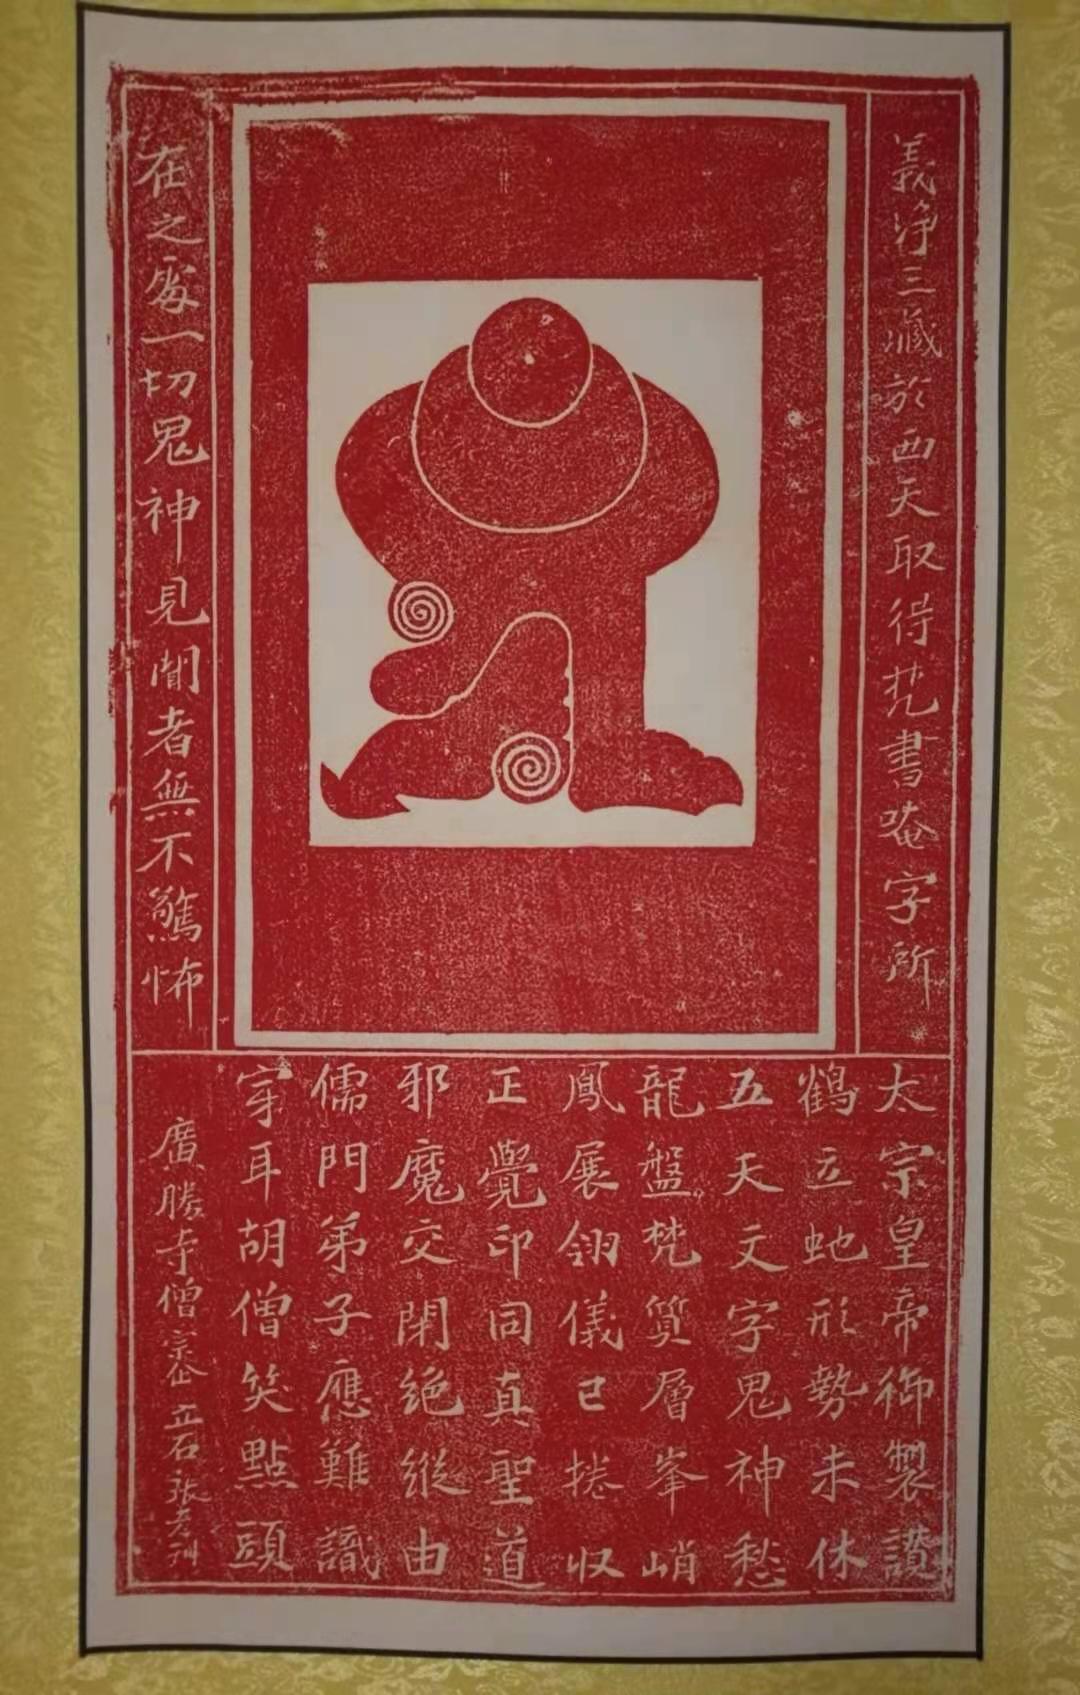 義淨三藏於西天取得梵書唵字所
在之處一切鬼神見聞者無不驚怖
太宗皇帝御製讚
鶴立虵形勢未休
五天文字鬼神愁
龍盤梵質層峯峭
鳳展翎儀已捲收
正覺印同真聖道
邪魔交閉絕縱由
儒門弟子應難識
穿耳胡僧笑點頭
廣勝寺僧立石張刊